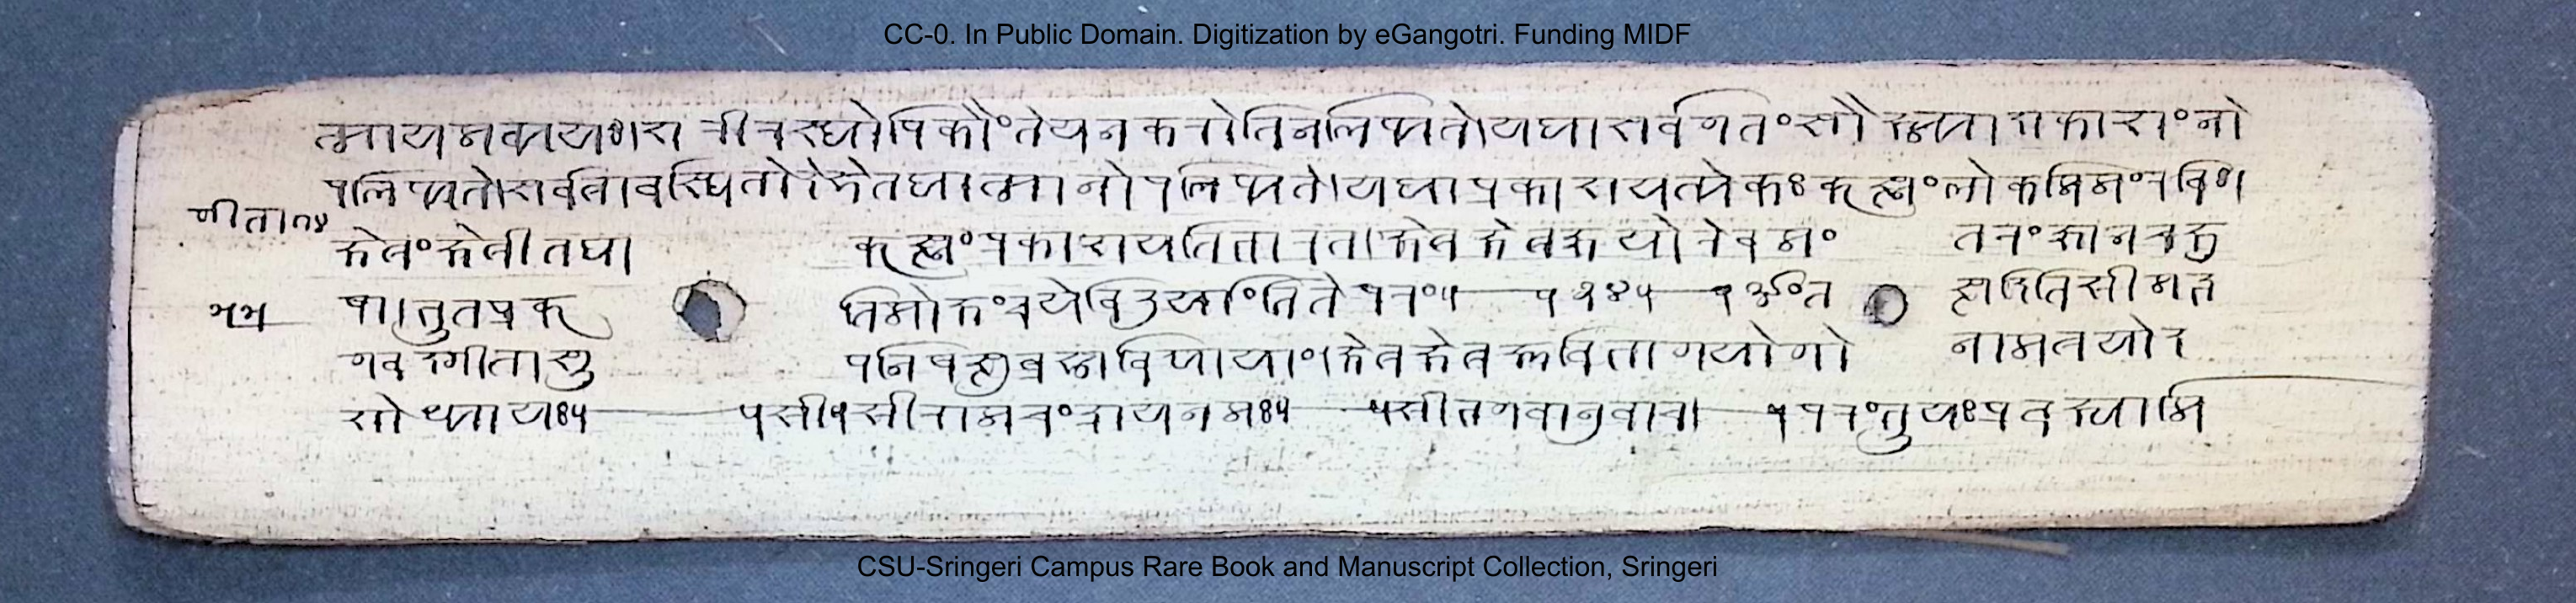 CC-0. In Public Domain. Digitization by eGangotri. Funding MIDF
त्मायमव्ययः।शरीरस्थोपि कौंतेय न करोति न लिप्यते।यथा सर्वगतं सौक्ष्म्यादाकाशं नो
पलिप्यते।सर्वत्रावस्थितो देहे तथात्मा नोपलिप्यते।यथा प्रकाशयत्येकः कृत्स्नं लोकमिमं रविः।
गीता
क्षेत्रं क्षेत्री तथा कृत्स्नं प्रकाशयति भारत।क्षेत्रक्षेत्रज्ञयोरेवमंतरं ज्ञानचक्षु
षा।भूतप्रकृतिमोक्षं च ये विदुर्यांति ते परं॥ सदिति श्रीमद्भ
गवद्गीतासूपनिषत्सु ब्रह्मविद्यायां।क्षेत्रक्षेत्रज्ञविभागयोगो नाम त्रयोद
शोध्यायः॥ ॥श्री॥श्रीरामचंद्राय नमः॥ ॥श्रीभगवानुवाच। ॥परं भूयः प्रवक्ष्यामि
CSU-Sringeri Campus Rare Book and Manuscript Collection, Sringeri